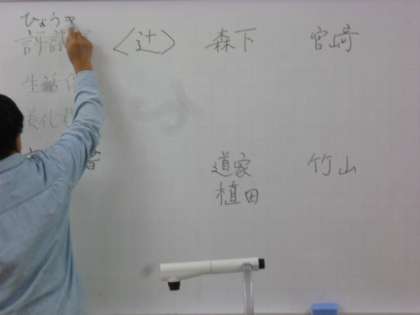 ひょう
評議 〈辻〉 森下 宮崎
生活
美化
道家 竹山
植田